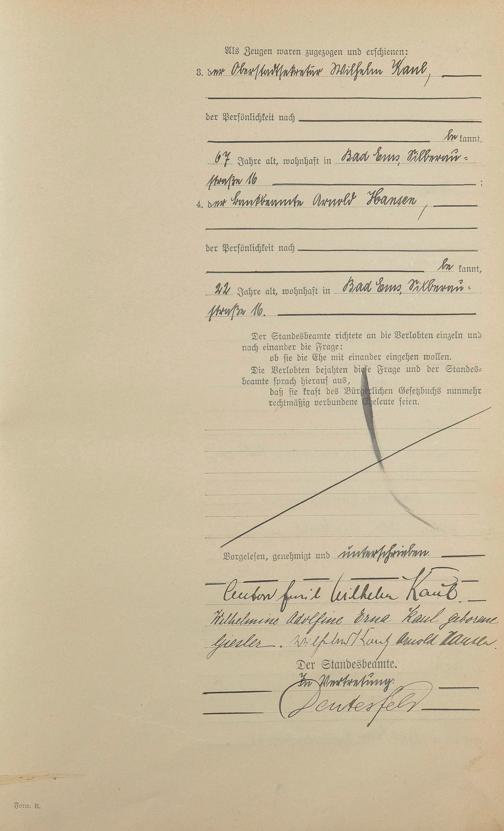 Als Zeugen waren zugezogen und erschienen:
3. der Oberstadtsekretär Wilhelm Kaul,
der Persönlichkeit nach
be kannt,
67 Jahre alt, wohnhaft in Bad Ems, Silberau-
straße 16 ;
4. der Bankbeamte Arnold Hansen,
der Persönlichkeit nach
be kannt,
22 Jahre alt, wohnhaft in Bad Ems, Silberau-
straße 16.
Der Standesbeamte richtete an die Verlobten einzeln und
nach einander die Frage:
ob sie die Ehe mit einander eingehen wollen.
Die Verlobten bejahten diese Frage und der Standes-
beamte sprach hierauf aus,
daß sie kraft des Bürgerlichen Gesetzbuchs nunmehr
rechtmäßig verbundene Eheleute seien.
Vorgelesen, genehmigt und unterschrieben
Anton Emil Wilhelm Kaul.
Wilhelmine Adolfine Erna Kaul geborene
Wilhelm Kaul Arnold Hansen.
Der Standesbeamte.
In Vertretung.
Form. B.